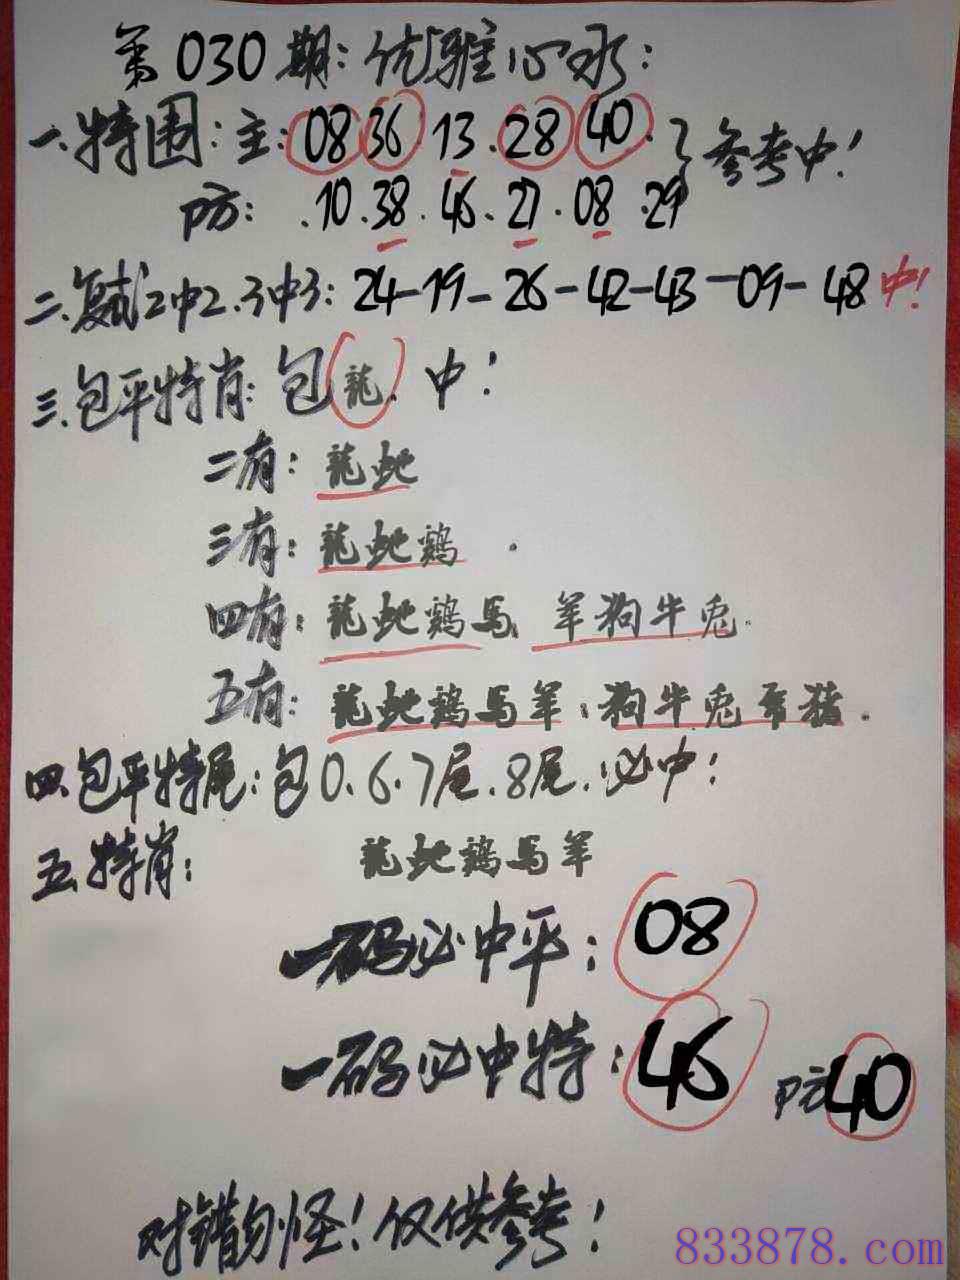 第030期:优雅心水:
一.特围:主:08 36·13·28 40·}参考中!
防:·10·38·46·27·08·29
二.复式2中2.3中3:24-19-26-42-43-09-48中!
三.包平特肖:包龍.中!
二有:龍蛇
三有:龍蛇鷄.
四有:龍蛇鷄馬 羊狗牛兎.
五有:龍蛇鷄馬羊:狗牛兎 猪.
四.包平特尾:包0.6.7尾.8尾.必中!
五.特肖: 龍蛇鷄馬羊
一码必中平:08
一码必中特:46 防40
对错勿怪!仅供参考!
833878.com